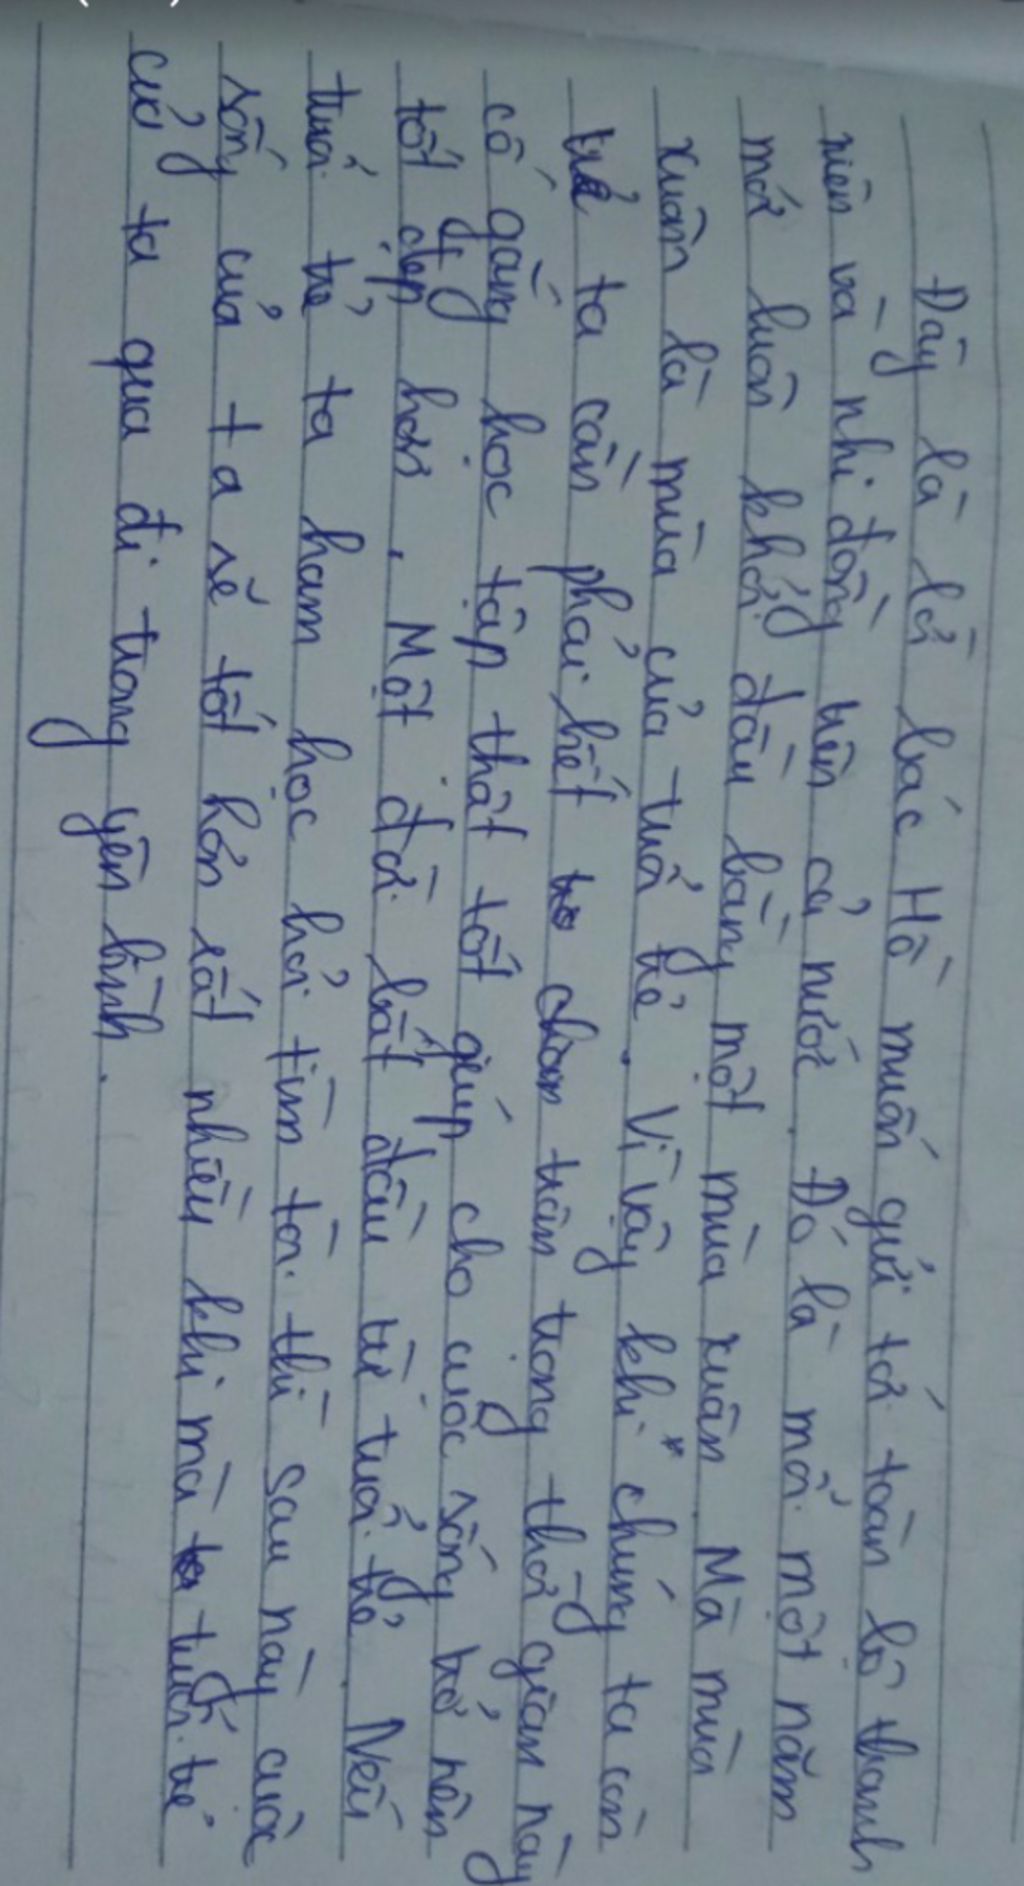 Đây là lời bác Hồ muốn gửi tới toàn bộ thanh
niên và nhi đồng trên cả nước. Đó là mỗi một năm
mới luôn khởi đầu bằng một mùa xuân. Mà mùa
xuân là mùa của tuổi trẻ. Vì vậy khi * chúng ta còn
trẻ ta cần phải biết trân trọng thời gian này
cố gắng học tập thật tốt giúp cho cuộc sống trở nên
tốt đẹp hơn. Một đời bắt đầu từ tuổi trẻ. Nếu
tuổi trẻ ta ham học hỏi tìm tòi thì sau này cuộc
sống của ta sẽ tốt hơn rất nhiều khi mà tuổi trẻ
của ta qua đi trong yên bình.